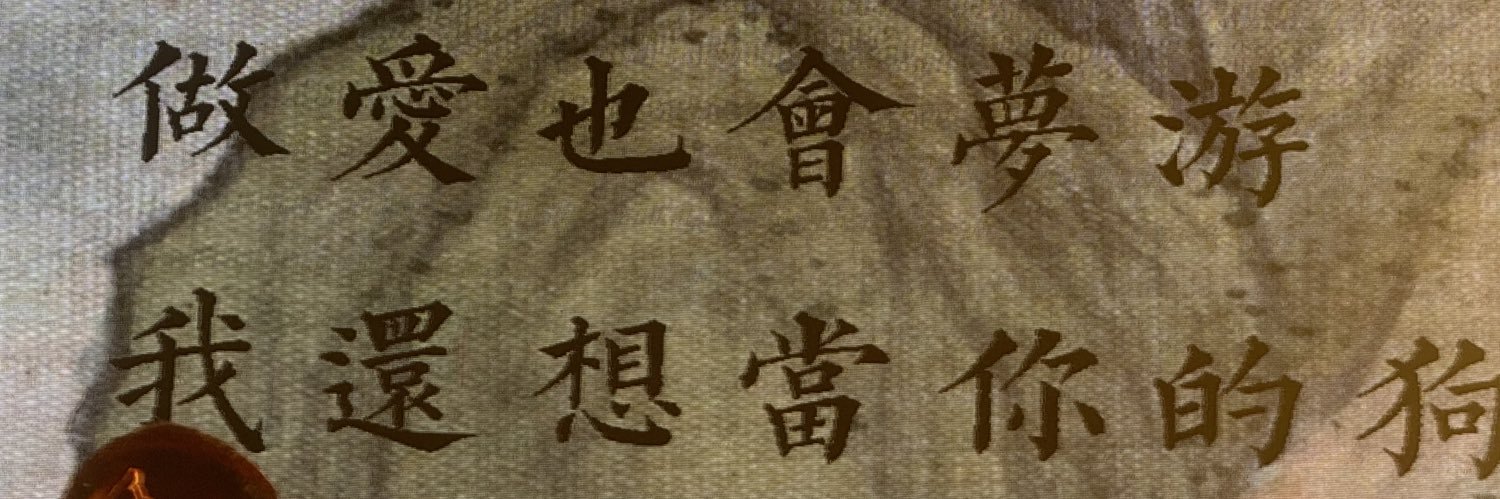 做愛也會夢游
我還想當你的狗